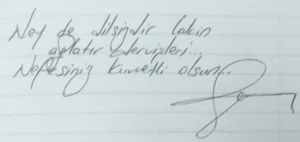 Ney de dilsizdir lakin
ağlatır dervişleri...
Nefesiniz kuvvetli olsun...